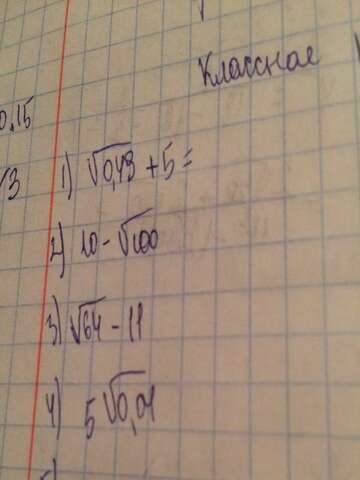 Классное
0,15
1) √0,49 + 5 =
2) 10 - √100
3) √64 - 11
4) 5√0,04